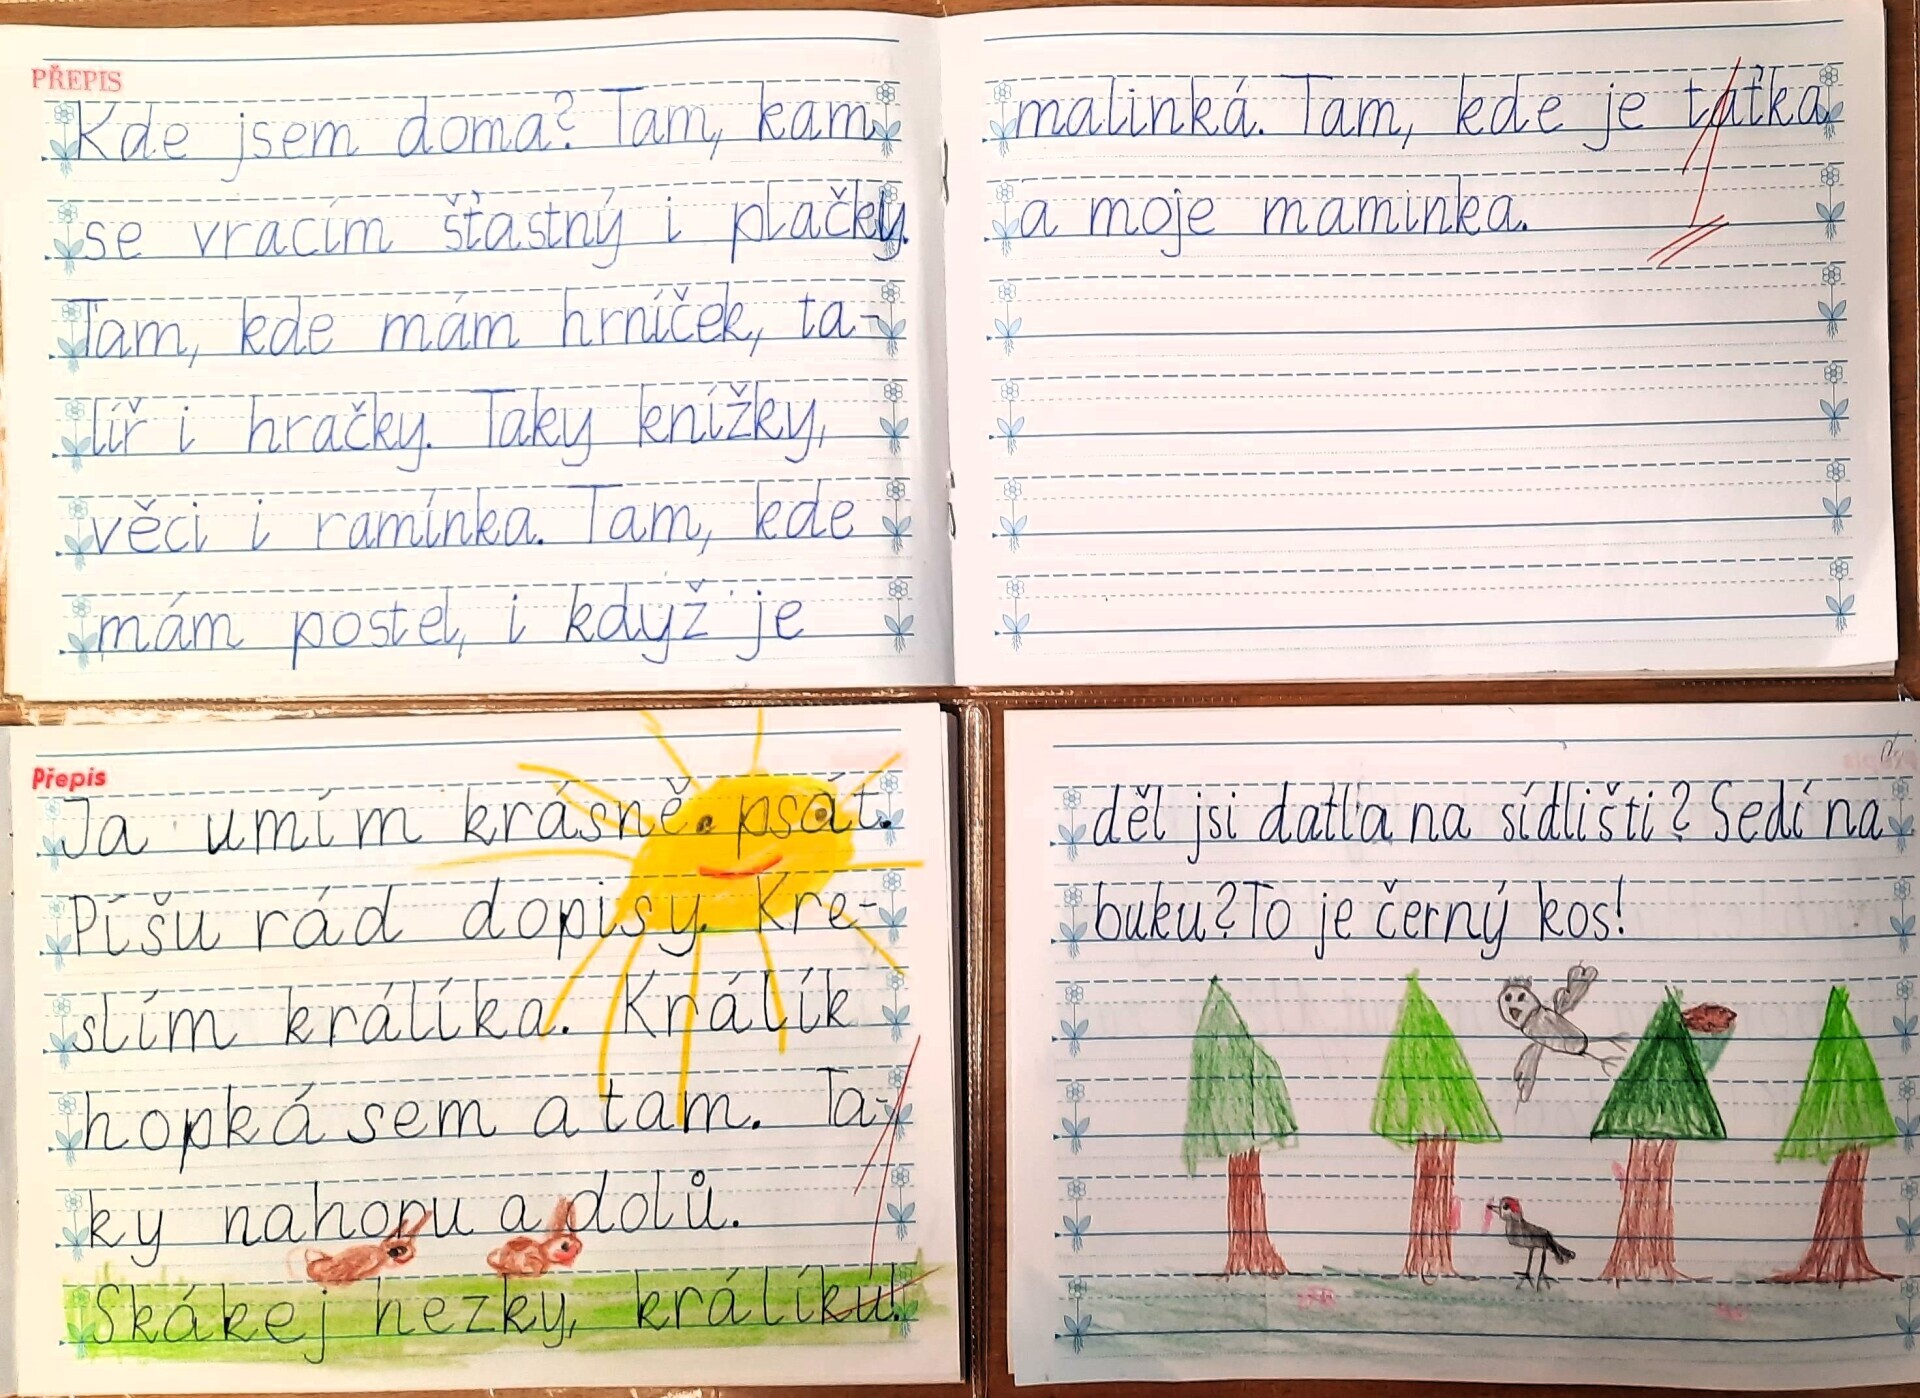 PŘEPIS
Kde jsem doma? Tam, kam
se vracím šťastný i plačky.
Tam, kde mám hrníček, ta-
líř i hračky. Taky knížky,
věci i ramínka. Tam, kde
mám postel, i když je
malinká. Tam, kde je taťka
a moje maminka.
Přepis
Ja umím krásně psát.
Píšu rád dopisy. Kre-
slím králíka. Králík
hopká sem a tam. Ta-
ky nahoru a dolů.
Skákej hezky, králíku!
děl jsi datla na sídlišti? Sedí na
buku? To je černý kos!